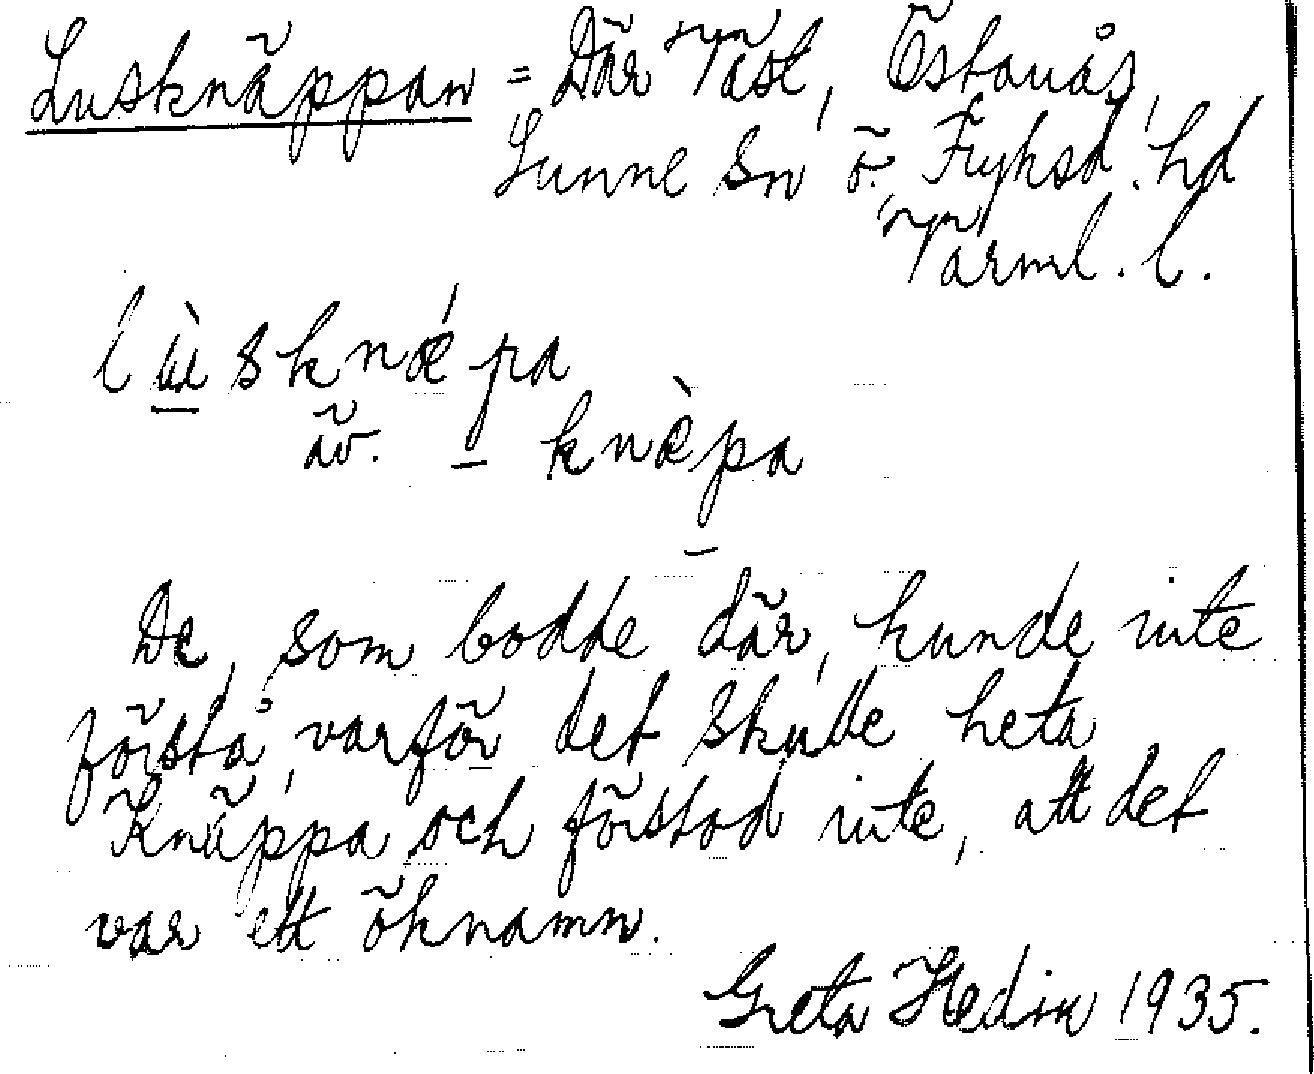 Lusknäppan = Där Väst, Östanås,
Sunne Sn Ö. Fryksd. hd
Värml. l.
lùsknǽpa
äv. – knæ̀pa
De, som bodde där, kunde inte
förstå, varför det skulle heta
Knäppa och förstod inte, att det
var ett öknamn.
Greta Hedin 1935.